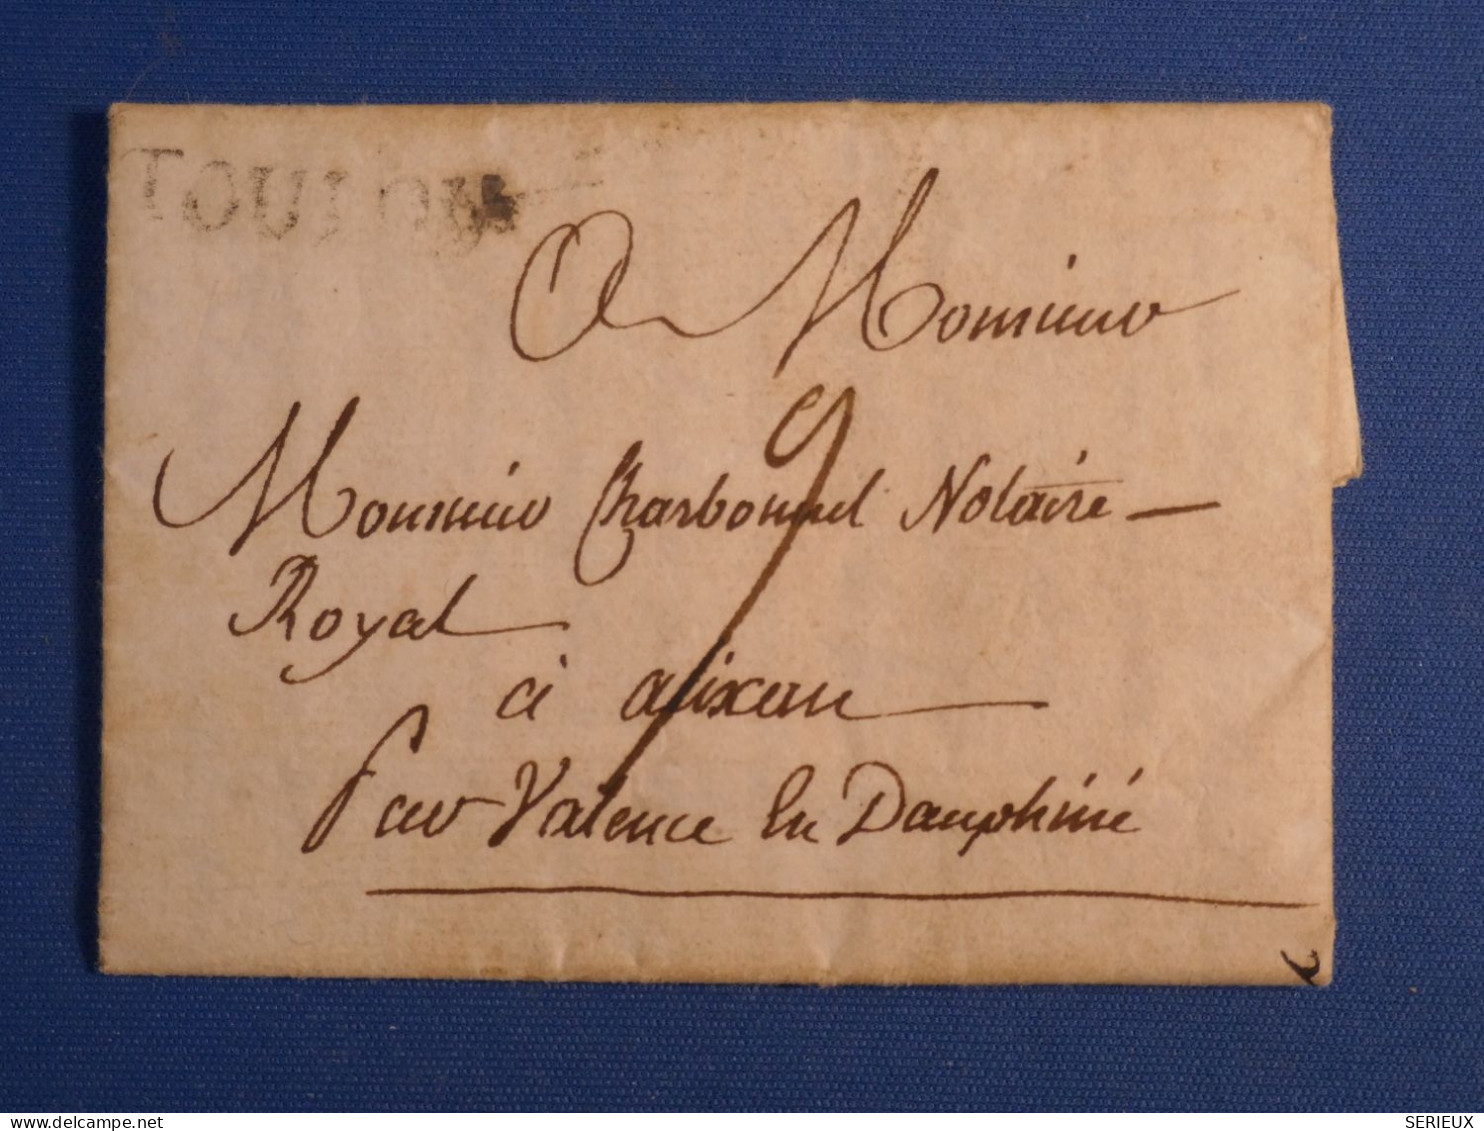 TOULON
A Monsieur
9
Monsieur Charbonnel Notaire
Royal
à alixan
par Valence En Dauphiné
delcampe.net
SERIEUX